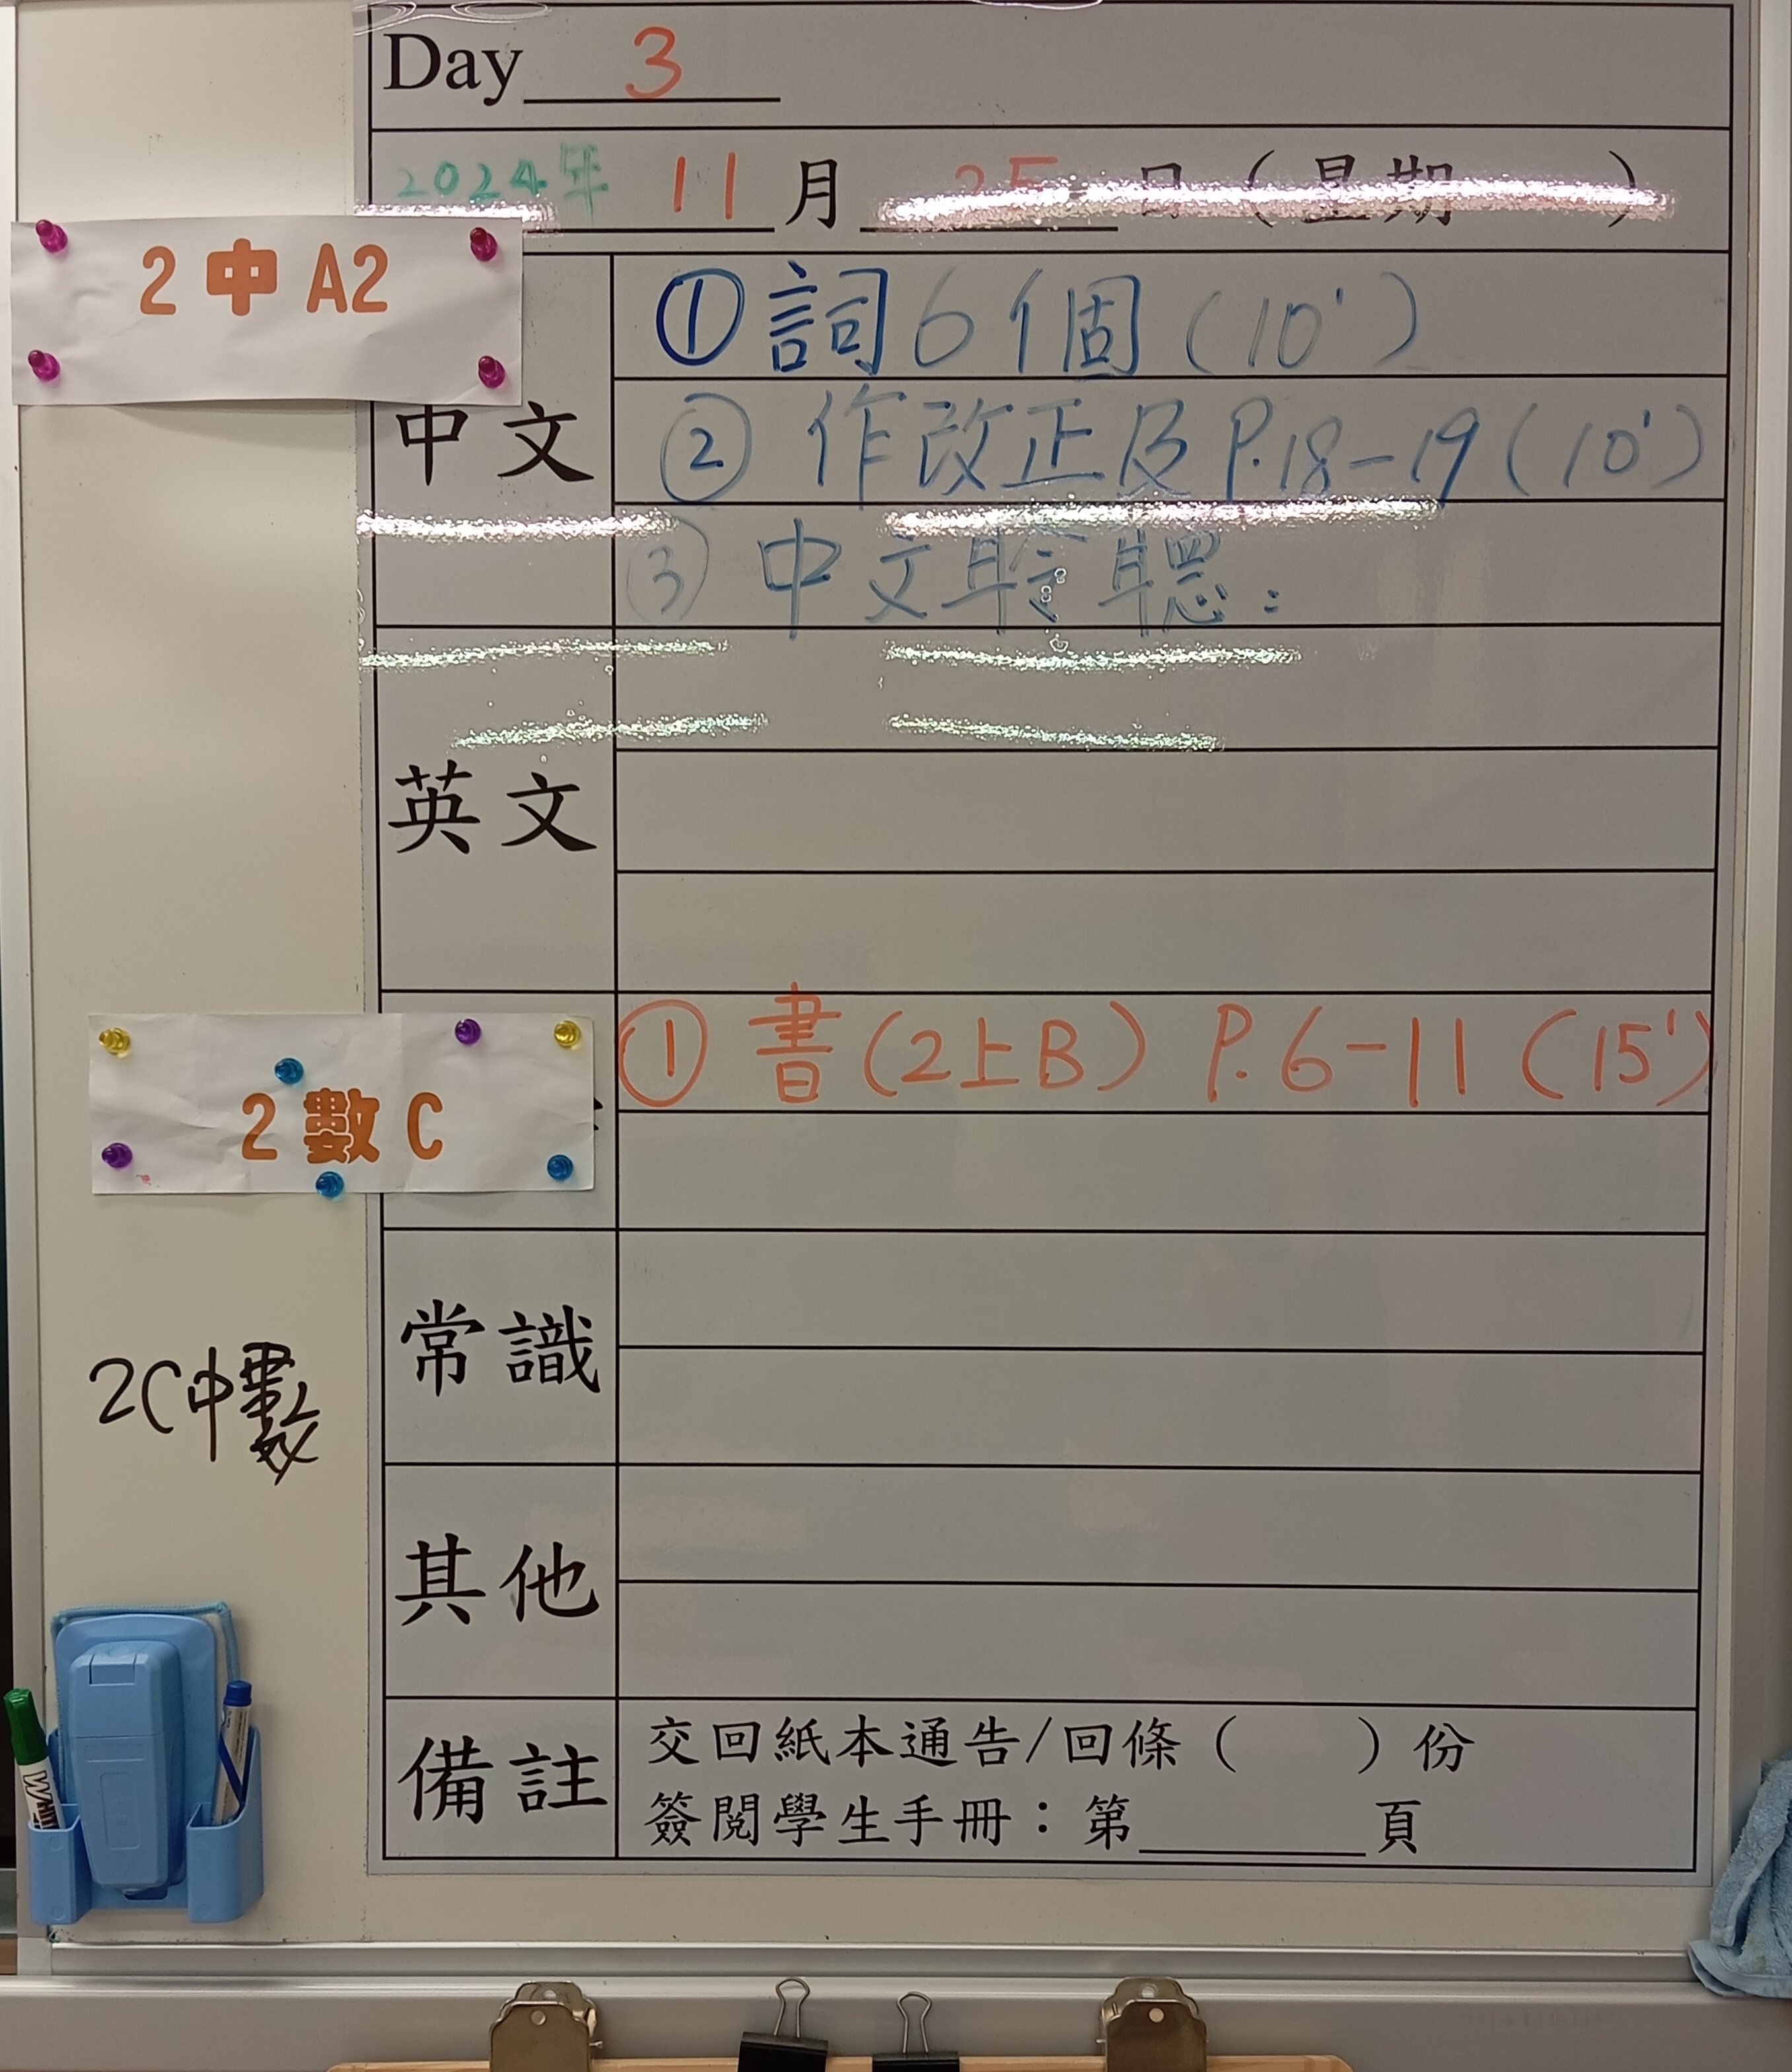 Day 3
2024年 11 月 25 日 ( 星期 )
2 中 A2
中文
①詞6個(10')
②作改正及P.18-19(10')
③中文聆聽:
英文
2 數 C
①書(2上B) P.6-11 (15')
常識
2C中數
其他
備註
交回紙本通告/回條( )份
簽閱學生手冊:第 頁